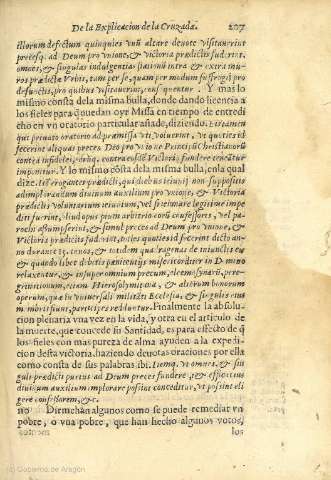 De la Explicacion de la Cruzada. 207
illorum defectum quinquies vnũ altare deuote visitauerint
precesq; ad Deum pro vnione, & victoria prædictis fuderint,
omnes, & singulas indulgentias stationũ intra & extra mu-
ros prædictæ Vrbis, tam per se, quam per modum suffragij pro
defunctis, pro quibus visitauerint, consequantur. Y mas lo
mismo consta dela misma bulla, donde dando licencia a
los fieles para q̃ puedan oyr Missa en tiempo de entredi
cho en vn oratorio particular añade, diziendo.
qui priuato oratorio ad præmissa vti voluerint, vt quoties id
fecerint aliquas preces Deo pro vnione Principũ Christianorũ
contra infideles, victoria, fundere teneatur
impartim. Y lo mismo cõsta dela misma bulla, en la qual
dize. Iis erogantes prædicti, qui diebus ieiunij non suppositis
ad implorandum diuinum auxilium pro vnione, & Victoria
prædictis voluntarium ieiunium, vel si ieiunare legitime impe
diti fuerint, aliud opus pium arbitrio sorũ confessores, vel pa-
rochi assumpserint, & simul preces ad Deum pro vnione, &
Victoria prædictis fuderint, toties quoties id fecerint dicto an-
no durante 15. annos, & totidem quadragenas de iniunctis eis
& quando liber debitis pœnitentijs misericorditer in Domino
relaxentur, & insuper omnium precum, eleemosynarũ, pere-
grinationum, etiam Hierosolymitana, & aliorum bonorum
operum, quæ in vniuersali militãti Ecclesia, & singulis eius
membris fiunt, participes reddantur. Finalmente la absolu-
cion plenaria vna vez en la vida, y otra en el articulo de
la muerte, que concede su Santidad, es para effecto de q̃
los fieles con mas pureza de alma ayuden a la expedi-
cion desta victoria, haziendo deuotas oraciones por ella
como consta de sus palabras ibi. Item q. vt omnes, & sin
guli prædicti purius ad Deum preces fundere, & efficacius
diuinum auxilium implorare possint conceditur, vt possint eli
gere confessorem, &c.
110 Dirmehan algunos como se puede remediar vn
pobre, o vna pobre, que han hecho algunos votos,
los
(c) Gobierno de Aragón